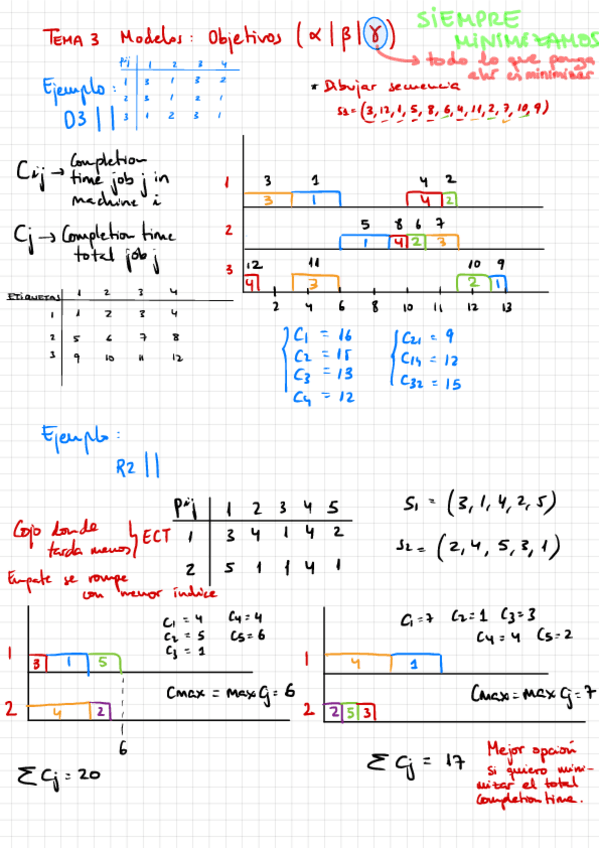 SIEMPRE
MINIMIZAMOS
TEMA 3 Modelos: Objetivos (α|β|γ)
todo lo que ponga
Ejemplo:
O3 ||
Pij 1 2 3 4
1 3 1 3 2
2 3 1 2 1
3 1 2 3 1
* Dibujar secuencia
S1 = (3, 12, 1, 5, 8, 6, 4, 11, 2, 7, 10, 9)
Cij → Completion
time job j in
machine i
Cj → Completion time
total job j
3 1 4 2
1 3 1 4 2
5 8 6 7
2 1 4 2 3
12 11 10 9
3 4 3 2 1
2 4 6 8 10 11 12 13
ETIQUETAS 1 2 3 4
1 1 2 3 4
2 5 6 7 8
3 9 10 11 12
C1 = 16
C2 = 15
C3 = 13
C4 = 12
C21 = 9
C14 = 12
C32 = 15
Ejemplo:
R2 ||
Cojo donde
tarda menos
ECT
Empate se rompe
con menor índice
Pij 1 2 3 4 5
1 3 4 1 4 2
2 5 1 1 4 1
S1 = (3, 1, 4, 2, 5)
S2 = (2, 4, 5, 3, 1)
C1 = 4 C4 = 4
C2 = 5 C5 = 6
C3 = 1
1 3 1 5
Cmax = max Cj = 6
2 4 2
6
Σ Cj = 20
C1 = 7 C2 = 1 C3 = 3
C4 = 4 C5 = 2
1 4 1
Cmax = max Cj = 7
2 2 5 3
Σ Cj = 17
Mejor opción
si quiero mini-
mizar el total
completion time.